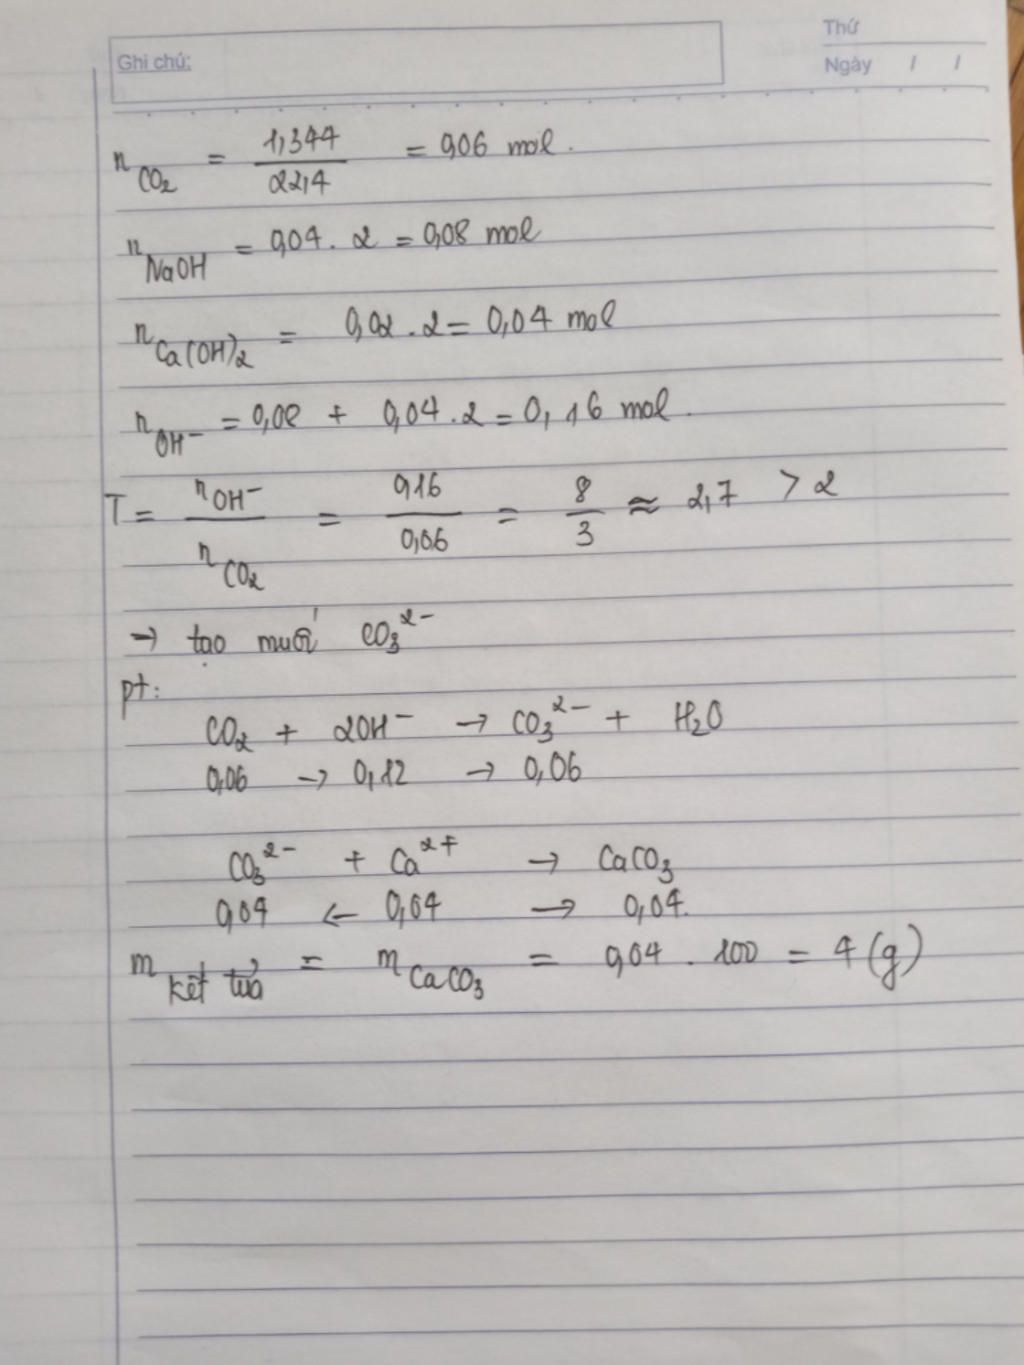 Ghi chú:
Thứ
Ngày / /
n CO₂ = 1,344 / 22,4 = 0,06 mol.
n NaOH = 0,04 . 2 = 0,08 mol
n Ca(OH)₂ = 0,02 . 2 = 0,04 mol
n OH⁻ = 0,08 + 0,04 . 2 = 0,16 mol.
T = n OH⁻ / n CO₂ = 0,16 / 0,06 = 8/3 ≈ 2,7 > 2
→ tạo muối CO₃²⁻
pt:
CO₂ + 2OH⁻ → CO₃²⁻ + H₂O
0,06 → 0,12 → 0,06
CO₃²⁻ + Ca²⁺ → CaCO₃
0,04 ← 0,04 → 0,04.
m kết tủa = m CaCO₃ = 0,04 . 100 = 4 (g)